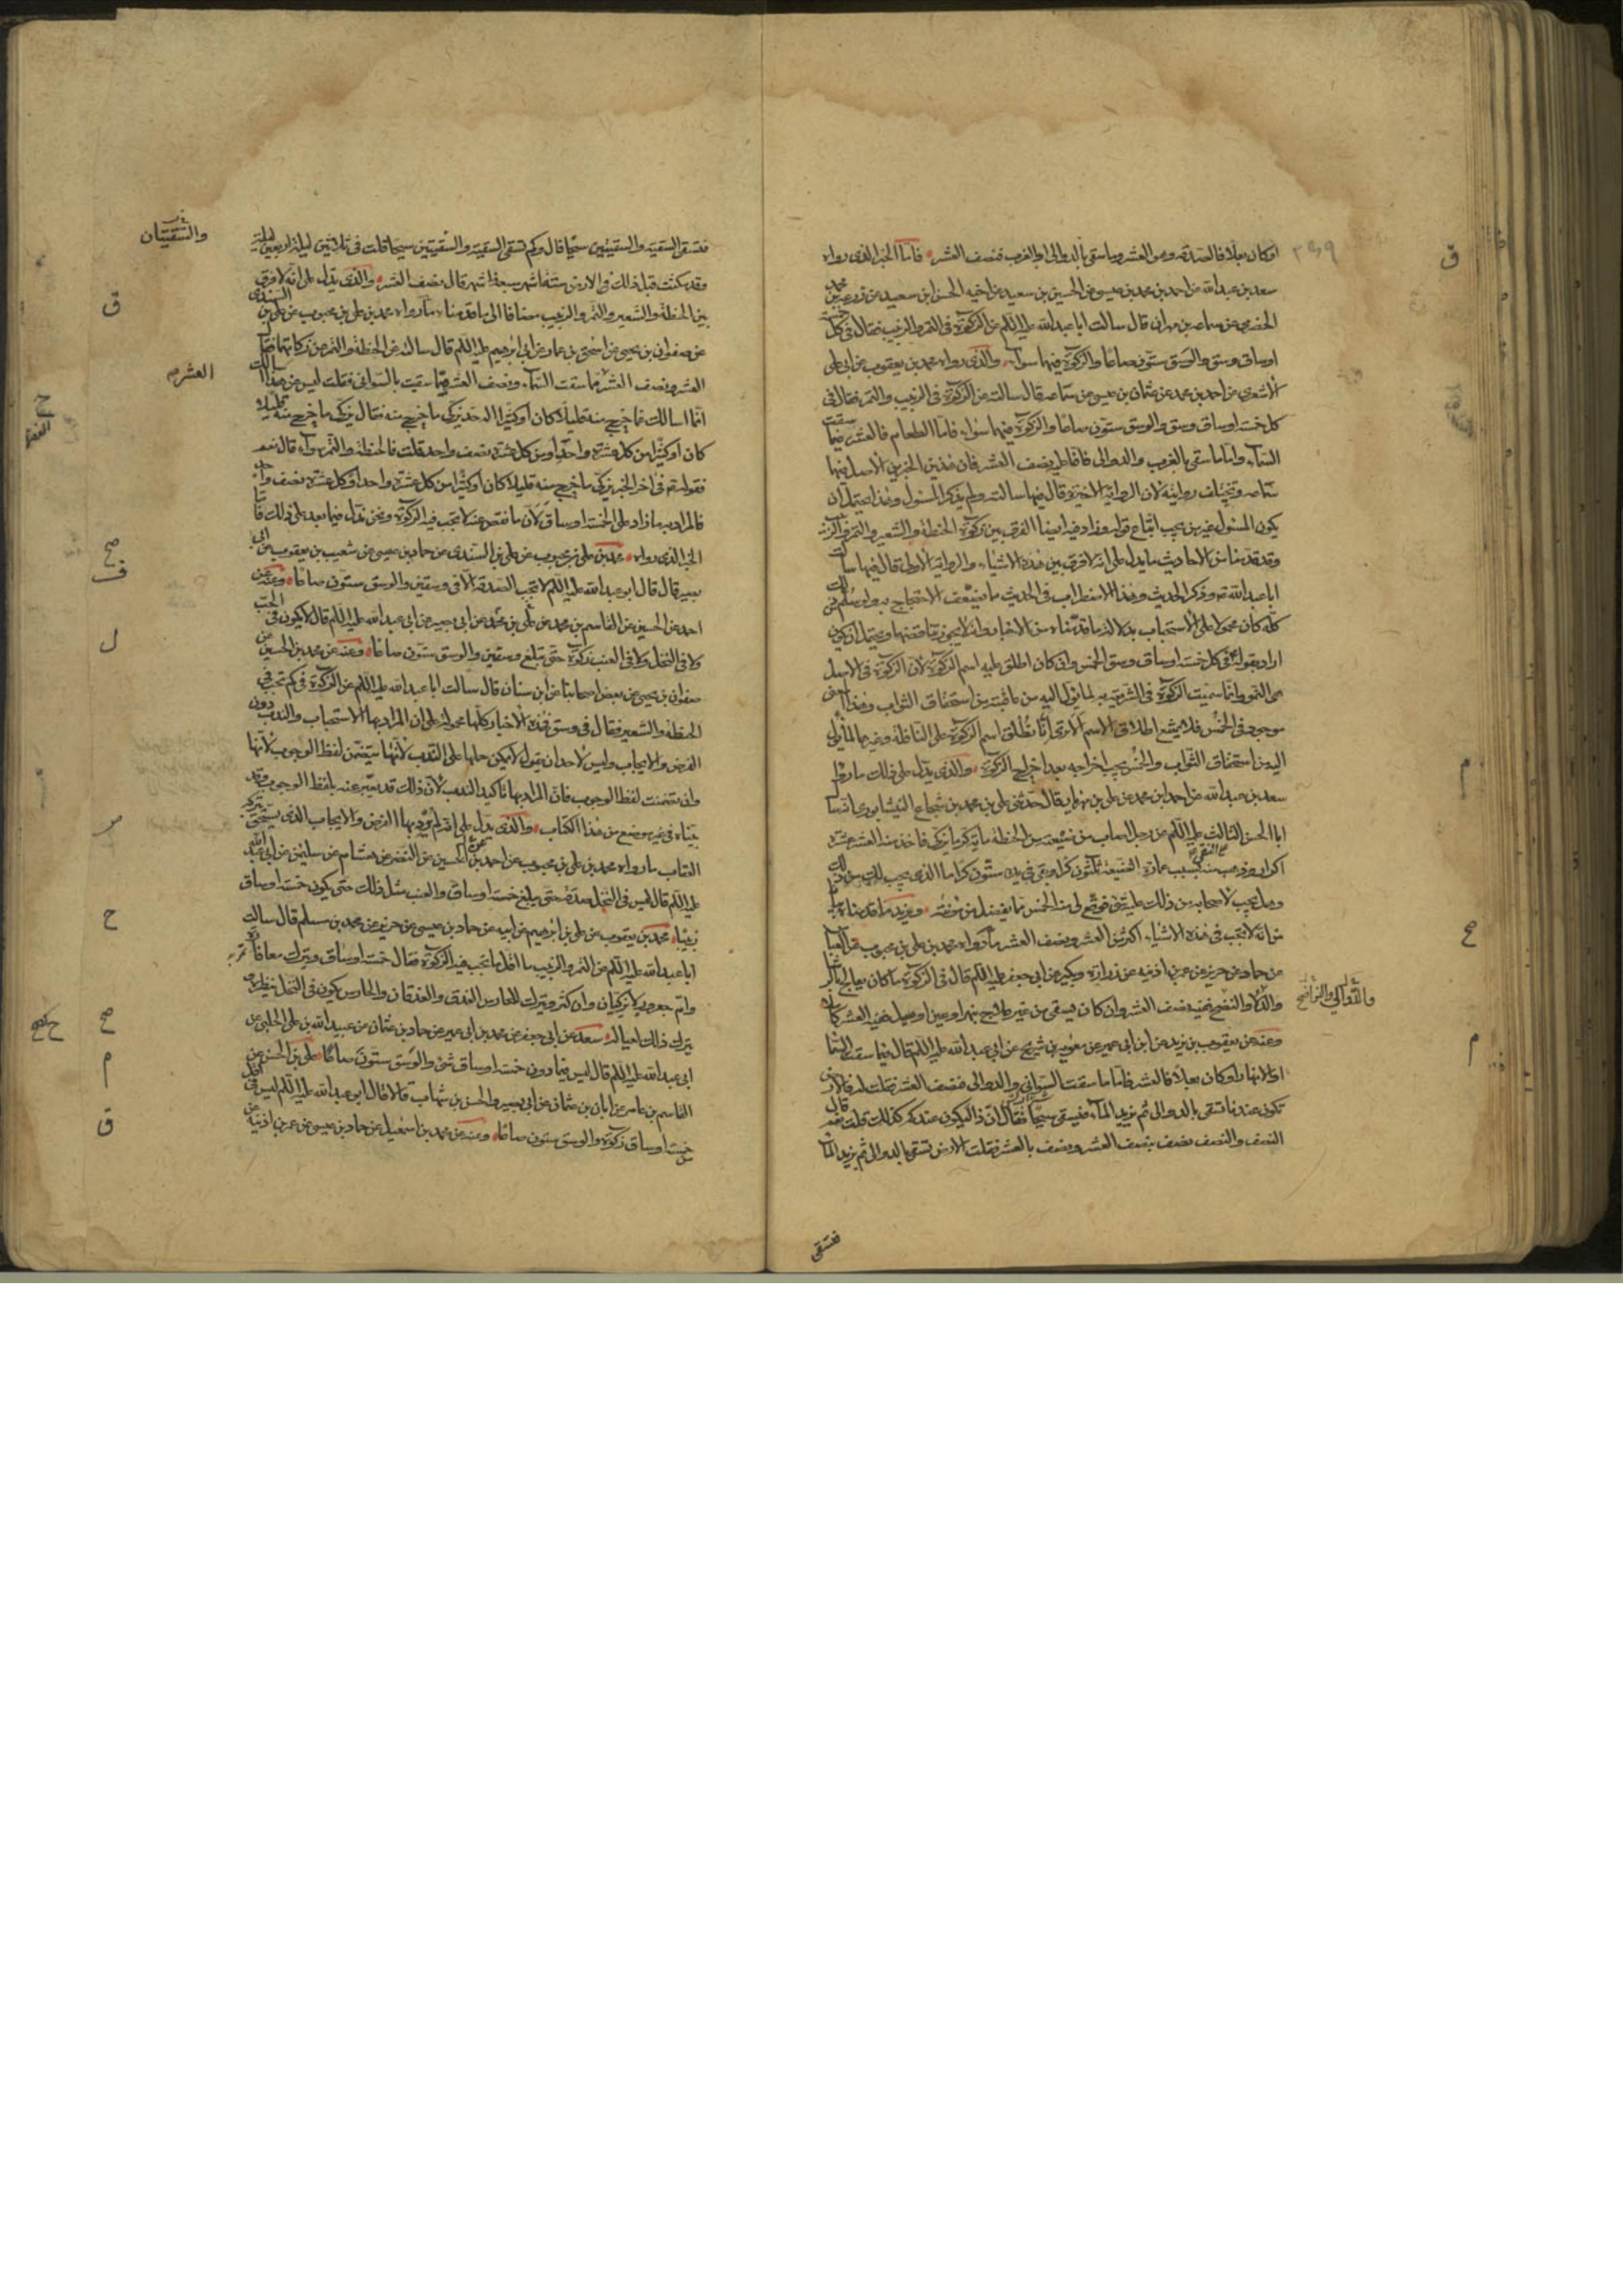 او كان بعلا فالصدقة وهو العشر وما سقى بالدوالى او بالغرب فنصف العشر فاما الخبر الذى رواه
سعد بن عبدالله عن احمد بن محمد بن عيسى عن الحسين بن سعيد عن اخيه الحسن ابن سعيد عن زرعة بن محمد
الحضرمى عن سماعة بن مهران قال سالت ابا عبدالله عليه السلام عن الزكوة فى التمر والزبيب فقال فى كل خمسة
اوساق وسق والوسق ستون صاعا والزكوة فيهما سواء والذى رواه محمد بن يعقوب عن ابى على
الاشعرى عن احمد بن محمد عن عثمان بن عيسى عن سماعة قال سالته عن الزكوة فى الزبيب والتمر فقال فى
كل خمسة اوساق وسق والوسق ستون صاعا والزكوة فيهما سواء فاما الطعام فالعشر فيما سقت
السماء واما ما سقى بالغرب والدوالى فانما عليه نصف العشر فان هذين الخبرين الاصل فيهما
سماعة وتختلف روايته لان الرواية الاخيرة قال فيها سالته ولم يذكر المسئول وهذا يحتمل ان
يكون المسئول غير من يجب اتباع قوله وزاد فيه ايضا الفرق بين زكوة الحنطة والشعير والتمر والزبيب
وقد قدمنا من الاحاديث ما يدل على انه لا فرق بين هذه الاشياء والرواية الاولى قال فيها سالت
ابا عبدالله وذكر الحديث وهذا الاضطراب فى الحديث مما يضعف الاحتجاج به ولو سلم من
كله كان محمولا على الاستحباب بدلالة ما قدمناه من الاخبار وانه لا يجوز تناقضها ويحتمل ان يكون
اراد بقوله فى كل خمسة اوساق وسق الخمس وان كان اطلق عليه اسم الزكوة لان الزكوة فى الاصل
هى النمو وانما سميت الزكوة فى الشريعة به لما يؤل اليه من عاقبته من استحقاق الثواب وهذا المعنى
موجود فى الخمس فلا يمتنع اطلاق الاسم الا ترى انا نطلق اسم الزكوة على النافلة وغيرها لما يؤل
اليه من استحقاق الثواب والخمس يجب اخراجه بعد اخراج الزكوة والذى يدل على ذلك ما رواه
سعد بن عبدالله عن احمد ابن محمد عن على بن مهزيار قال حدثنى على بن محمد بن شجاع النيشابورى انه سال
ابا الحسن الثالث عليه السلام عن رجل اصاب من ضيعته من الحنطة ماية كر ما يزكى فاخذ منه العشر عشرة
اكرار وذهب منه بسبب عمارة الضيعة ثلثون كرا وبقى فى يده ستون كرا ما الذى يجب لك من ذلك
وهل يجب لاصحابه من ذلك عليه شئ فوقع لى منه الخمس مما يفضل من مؤنته ويزيد ما قدمناه بيانا
من انه لا تجب فى هذه الاشياء اكثر من العشر ونصف العشر ما رواه محمد بن على بن محبوب عن العباس
عن حماد عن حريز عن عمر بن اذينة عن زرارة وبكير عن ابى جعفر عليه السلام قال فى الزكوة ما كان يعالج بالرشا
والدلاء والنضح ففيه نصف العشر وان كان يسقى من غير علاج بنهر او عين او بعل ففيه العشر كاملا
وعنه عن يعقوب بن يزيد عن ابن ابى عمير عن معوية بن شريح عن ابى عبدالله عليه السلام قال فيما سقت السماء
او الانهار او كان بعلا فالعشر فاما ما سقت السوانى والدوالى فنصف العشر فقلت له فالارض
تكون عندنا تسقى بالدوالى ثم يزيد الماء فتسقى سيحا فقال ان ذا ليكون عندكم كذلك قلت نعم قال
النصف والنصف نصف بنصف العشر ونصف بالعشر فقلت الارض تسقى بالدوالى ثم يزيد الماء
فتسقى
والدوالى والنواضح
فتسقى السقية والسقيتين سيحا قال وكم تسقى السقية والسقيتين سيحا قلت فى ثلاثين ليلة اربعين ليلة
وقد مكثت قبل ذلك فى الارض ستة اشهر سبعة اشهر قال نصف العشر والذى يدل على انه لا فرق
بين الحنطة والشعير والتمر والزبيب مضافا الى ما قدمناه ما رواه محمد بن على بن محبوب عن على بن السندى
عن صفوان بن يحيى عن اسحق بن عمار عن ابى ابرهيم عليه السلام قال سالته عن الحنطة والتمر عن زكاتهما فقال
العشر ونصف العشر مما سقت السماء ونصف العشر مما سقيت بالسوانى فقلت ليس عن هذا اسالك
انما اسالك عما خرج منه قليلا كان او كثيرا اله حد يزكى ما خرج منه فقال يزكى ما خرج منه قليلا
كان او كثيرا من كل عشرة واحدا ومن كل عشرة نصف واحد قلت فالحنطة والتمر سواء قال نعم
فقوله فى اخر الخبر يزكى ما خرج منه قليلا كان او كثيرا من كل عشرة واحدا وكل عشرة نصف واحد
فالمراد به ما زاد على الخمسة اوساق لان ما نقص عنه لا تجب فيه الزكوة ونحن ندل فيما بعد على ذلك فاما
الخبر الذى رواه محمد بن على بن محبوب عن على بن السندى عن حماد بن عيسى عن شعيب بن يعقوب عن ابى
بصير قال قال ابو عبدالله عليه السلام لا تجب الصدقة الا فى وسقين والوسق ستون صاعا وعنه عن
احمد عن الحسين عن القاسم بن محمد عن على بن محمد عن ابى بصير عن ابى عبدالله عليه السلام قال لا يكون فى الحب
ولا فى النخل ولا فى العنب زكوة حتى تبلغ وسقين والوسق ستون صاعا وعنه عن محمد بن الحسين عن
صفوان بن يحيى عن بعض اصحابنا عن ابن سنان قال سالت ابا عبدالله عليه السلام عن الزكوة فى كم تجب فى
الحنطة والشعير فقال فى وسق فهذه الاخبار كلها محمولة على ان المراد بها الاستحباب والندب دون
الفرض والايجاب وليس لاحد ان يقول لا يمكن حملها على الندب لانها تتضمن لفظ الوجوب لانها
وان تضمنت لفظ الوجوب فان المراد بها تاكيد الندب لان ذلك قد يعبر عنه بلفظ الوجوب وقد
بيناه فى غير موضع من هذا الكتاب والذى يدل على انه لم يرد بها الفرض والايجاب الذى يستحق بتركه
العقاب ما رواه محمد بن على بن محبوب عن احمد عن الحسين عن النضر عن هشام عن سليمن عن ابى عبدالله
عليه السلام قال ليس فى النخل صدقة حتى يبلغ خمسة اوساق والعنب مثل ذلك حتى يكون خمسة اوساق
زبيبا محمد بن يعقوب عن على بن ابرهيم عن ابيه عن حماد بن عيسى عن حريز عن محمد بن مسلم قال سالت
ابا عبدالله عليه السلام عن التمر والزبيب ما اقل ما تجب فيه الزكوة فقال خمسة اوساق ويترك معافارة
وام جعرور لا يزكيان وان كثر ويترك للحارس العذق والعذقان والحارس يكون فى النخل ينظره
يترك ذلك لعياله سعد عن ابى جعفر عن محمد بن ابى عمير عن حماد بن عثمان عن عبيدالله بن على الحلبى عن
ابى عبدالله عليه السلام قال ليس فيما دون خمسة اوساق شئ والوسق ستون صاعا على بن الحسن عن
القاسم بن عامر عن ابان بن عثمان عن ابى بصير والحسن بن شهاب قالا قال ابو عبدالله عليه السلام ليس فى اقل
من خمسة اوساق زكوة والوسق ستون صاعا وعنه عن محمد بن اسمعيل عن حماد بن عيسى عن عمر بن اذينة عن